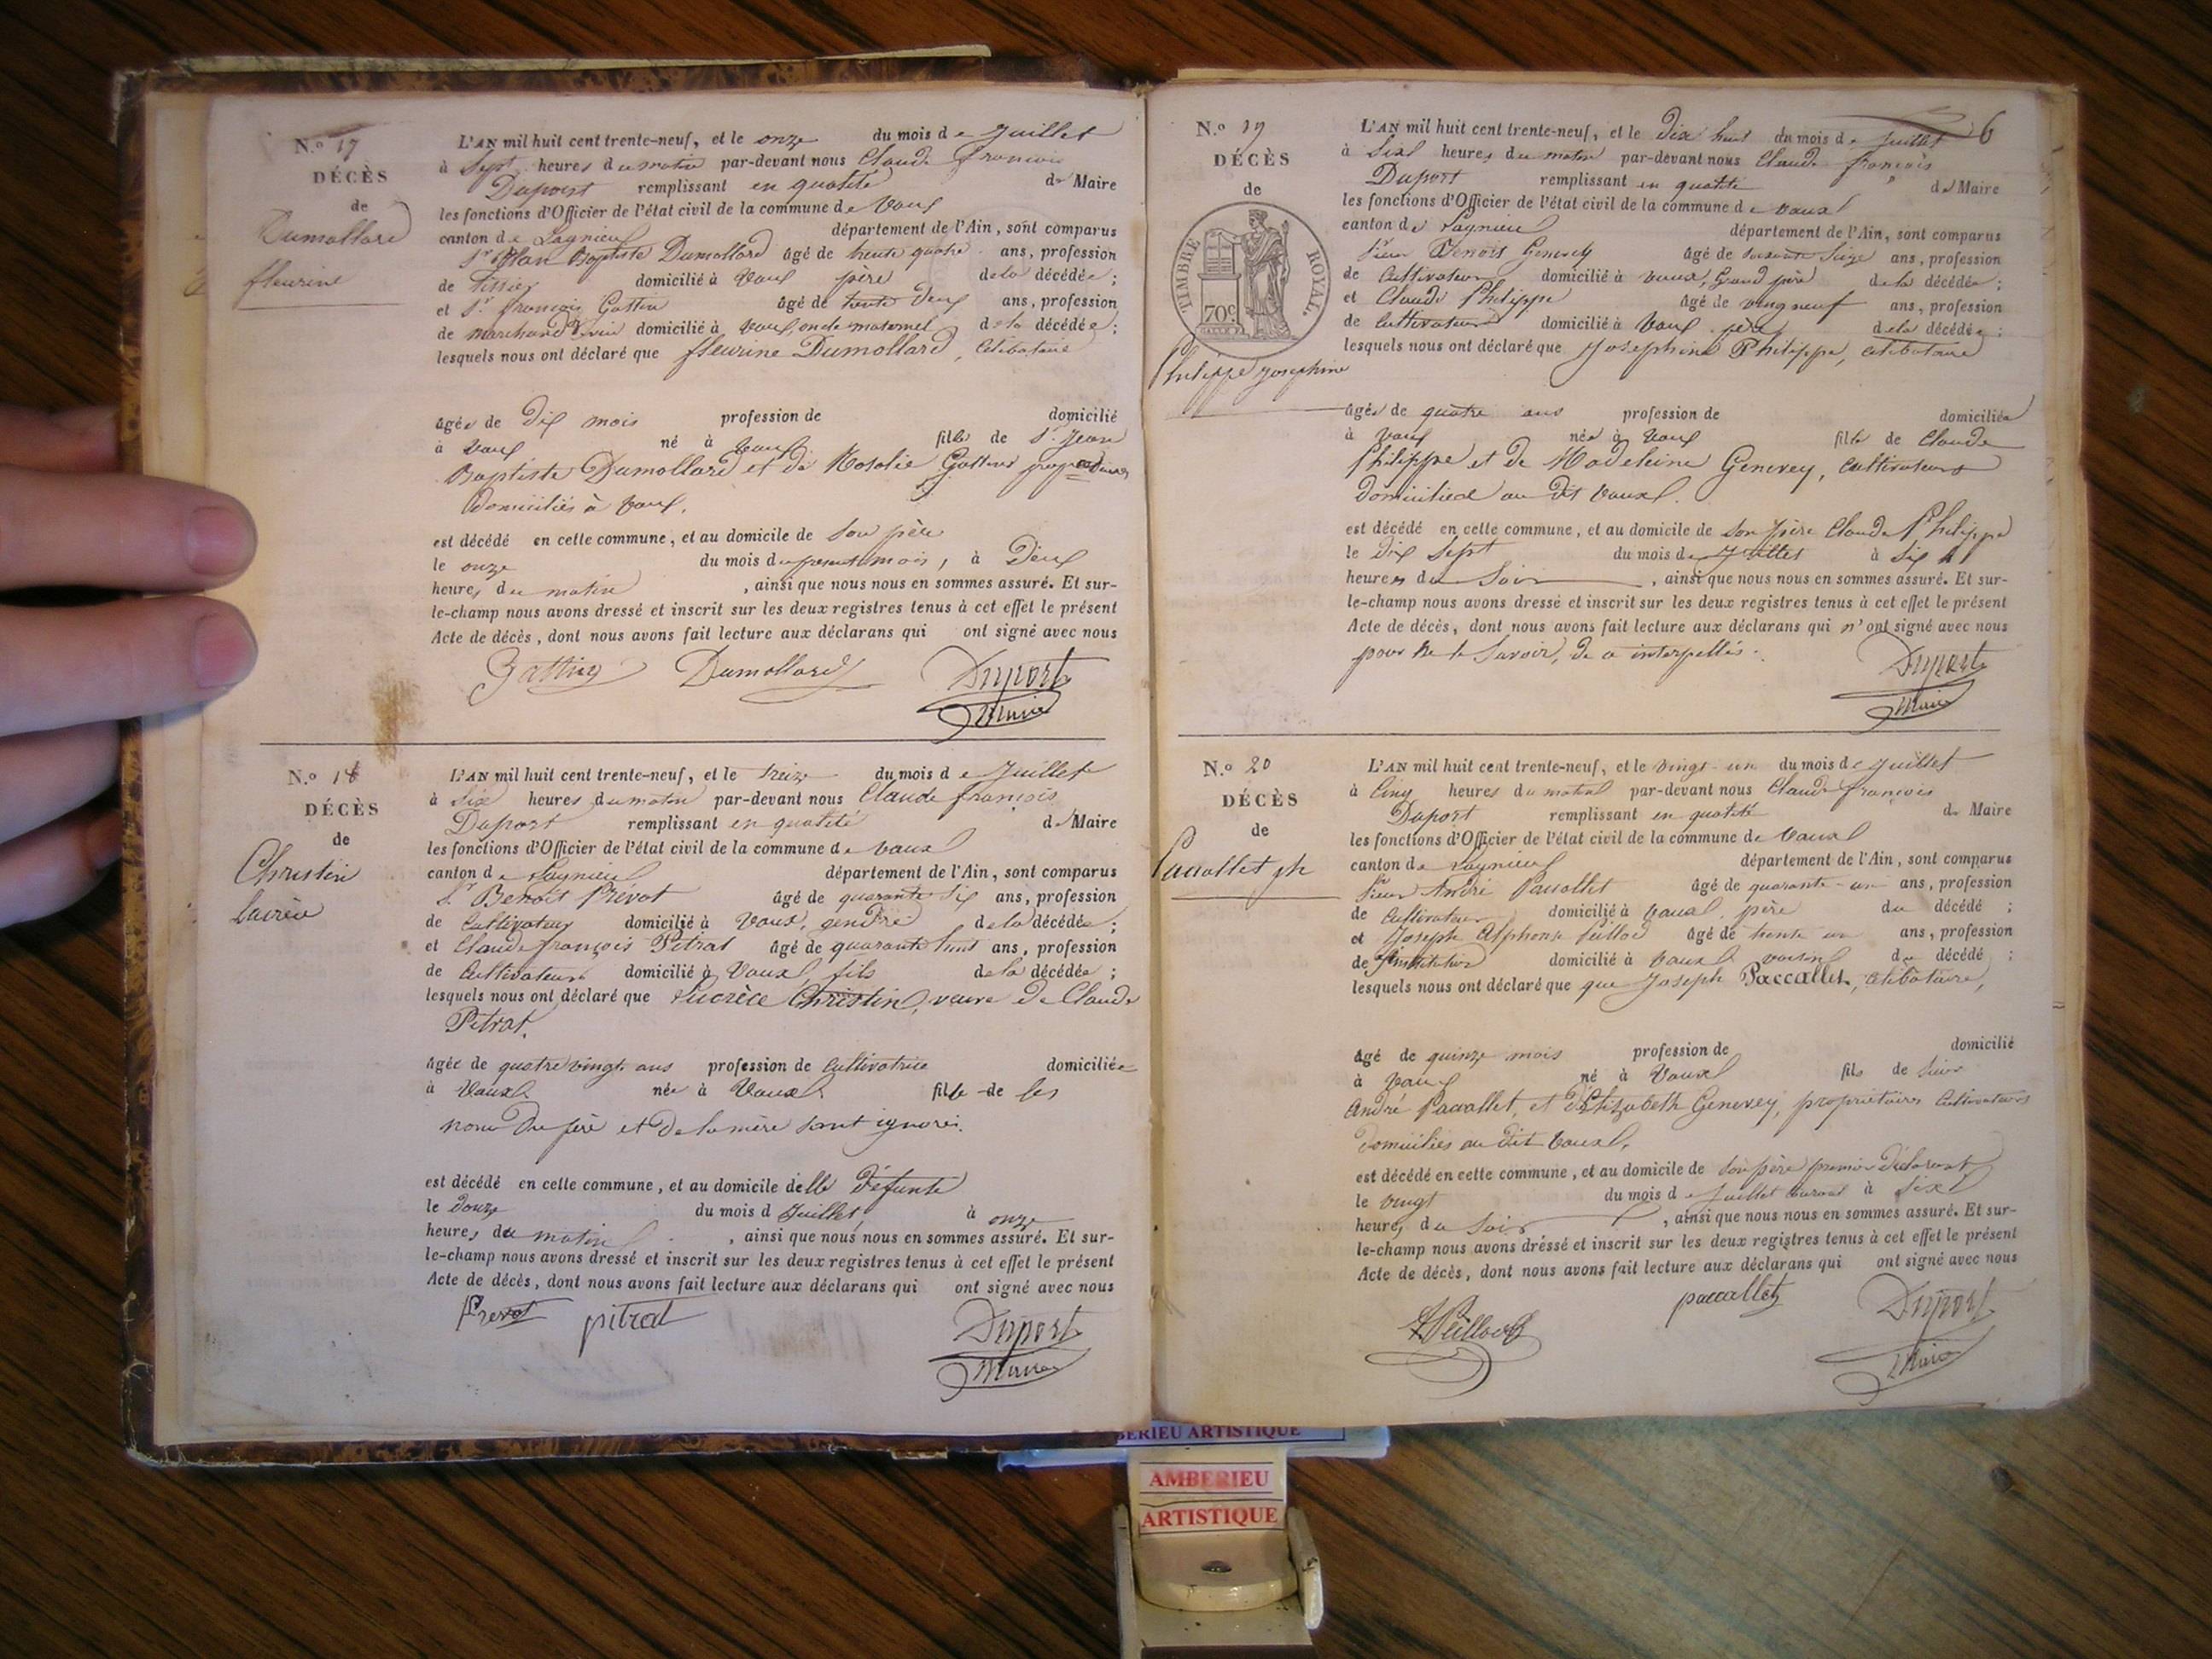 N.º 17
DÉCÈS
de
Dumollard
fleurine
L'AN mil huit cent trente-neuf, et le onze du mois de Juillet
à Sept heures du matin par-devant nous Claude françois
Duport remplissant en qualité de Maire
les fonctions d'Officier de l'état civil de la commune de Vaux
canton de Lagnieu département de l'Ain, sont comparus
Sr Jean Baptiste Dumollard âgé de trente quatre ans, profession
de Tissier domicilié à Vaux père de la décédée ;
et Sr françois Gattin âgé de trente deux ans, profession
de marchand domicilié à Vaux, oncle maternel de la décédée ;
lesquels nous ont déclaré que fleurine Dumollard, célibataire
âgée de dix mois profession de domicilié
à Vaux né à Vaux fille de Sr Jean
Baptiste Dumollard et de Rosalie
domiciliés à Vaux,
est décédé en cette commune, et au domicile de son père
le onze du mois du présent mois, à Deux
heures du matin, ainsi que nous nous en sommes assuré. Et sur-
le-champ nous avons dressé et inscrit sur les deux registres tenus à cet effet le présent
Acte de décès, dont nous avons fait lecture aux déclarans qui ont signé avec nous
Gattin Dumollard Duport
Maire
N.º 18
DÉCÈS
de
Christin
Lucrèce
L'AN mil huit cent trente-neuf, et le treize du mois de Juillet
à Six heures du matin par-devant nous Claude françois
Duport remplissant en qualité de Maire
les fonctions d'Officier de l'état civil de la commune de Vaux
canton de Lagnieu département de l'Ain, sont comparus
Sr Benoit Prévot âgé de quarante six ans, profession
de Cultivateur domicilié à Vaux, gendre de la décédée ;
et Claude françois Pitrat âgé de quarante huit ans, profession
de Cultivateur domicilié à Vaux, fils de la décédée ;
lesquels nous ont déclaré que Lucrèce Christin, veuve de Claude
Pitrat,
âgée de quatre vingt ans profession de Cultivatrice domiciliée
à Vaux née à Vaux fille de les
noms du père et de la mère sont ignorés.
est décédé en cette commune, et au domicile de lla défunte
le douze du mois d Juillet à onze
heures du matin, ainsi que nous nous en sommes assuré. Et sur-
le-champ nous avons dressé et inscrit sur les deux registres tenus à cet effet le présent
Acte de décès, dont nous avons fait lecture aux déclarans qui ont signé avec nous
Prevot pitrat Duport
Maire
6
N.º 19
DÉCÈS
de
TIMBRE ROYAL
70c
Philippe Josephine
L'AN mil huit cent trente-neuf, et le dix huit du mois de Juillet
à Six heures du matin par-devant nous Claude françois
Duport remplissant en qualité de Maire
les fonctions d'Officier de l'état civil de la commune de Vaux
canton de Lagnieu département de l'Ain, sont comparus
Sieur Benoit Genevey âgé de soixante Seize ans, profession
de Cultivateur domicilié à Vaux, Grand père de la décédée ;
et Claude Philippe âgé de vingt neuf ans, profession
de Cultivateur domicilié à Vaux père de la décédée ;
lesquels nous ont déclaré que Josephine Philippe, célibataire
âgée de quatre ans profession de domiciliée
à Vaux née à Vaux fille de Claude
Philippe et de Madeleine Genevey, cultivateurs
domiciliés au dit Vaux.
est décédé en cette commune, et au domicile de son père Claude Philippe
le dix Sept du mois de Juillet à Six
heures du Soir, ainsi que nous nous en sommes assuré. Et sur-
le-champ nous avons dressé et inscrit sur les deux registres tenus à cet effet le présent
Acte de décès, dont nous avons fait lecture aux déclarans qui n'ont signé avec nous
pour ne le Savoir, de ce interpellés.
Duport
Maire
N.º 20
DÉCÈS
de
Paccallet jh
L'AN mil huit cent trente-neuf, et le vingt-un du mois de Juillet
à Cinq heures du matin par-devant nous Claude françois
Duport remplissant en qualité de Maire
les fonctions d'Officier de l'état civil de la commune de Vaux
canton de Lagnieu département de l'Ain, sont comparus
Sieur André Paccallet âgé de quarante-un ans, profession
de Cultivateur domicilié à Vaux, père du décédé ;
et Joseph Alphonse Peilloud âgé de trente un ans, profession
de Instituteur domicilié à Vaux voisin du décédé ;
lesquels nous ont déclaré que que Joseph Paccallet, célibataire,
âgé de quinze mois profession de domicilié
à Vaux né à Vaux fils de Sieur
André Paccallet, et d'Elizabeth Genevey, propriétaires Cultivateurs
domiciliés au dit Vaux,
est décédé en cette commune, et au domicile de son père premier déclarant
le vingt du mois de Juillet courant à Six
heures du Soir, ainsi que nous nous en sommes assuré. Et sur-
le-champ nous avons dressé et inscrit sur les deux registres tenus à cet effet le présent
Acte de décès, dont nous avons fait lecture aux déclarans qui ont signé avec nous
paccallet Duport
Peilloud Maire
BERIEU ARTISTIQUE
AMBERIEU
ARTISTIQUE